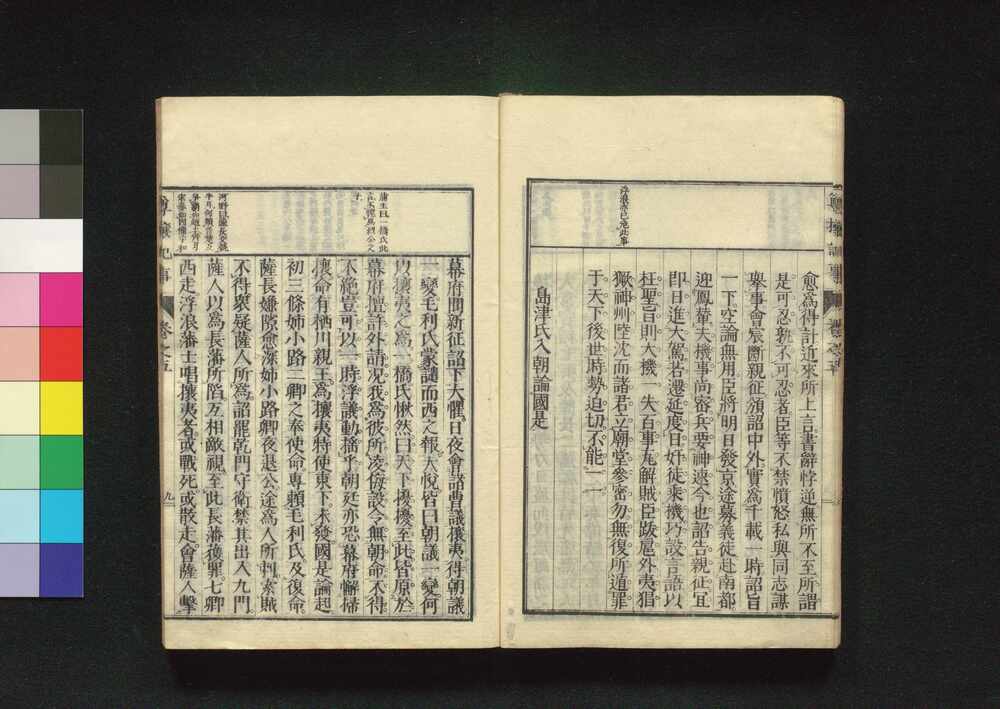 尊攘記事 卷之五
浮浪亦已危此事
愈爲得計近來所上言書辭悖逆無所不至所謂
是可忍孰不可忍者臣等不禁憤怒私與同志謀
擧事會宸斷親征頒詔中外實爲千載一時詔旨
一下空論無用臣將明日發京途募義徒赴南都
迎鳳輦夫機事尚密兵要神速今也詔告親征宜
即日進大駕若遷延度日奸徒乘機巧設言語以
枉聖旨則大機一失百事瓦解賊臣跋扈外夷猖
獗神州陸沈而諸君立廟堂參密勿無復所逭罪
于天下後世時勢迫切不能一一
島津氏入朝論國是
蒲生曰一橋氏此
言不愧爲烈公之
子
幕府聞新征詔下大懼日夜會諸曹議攘夷得朝議
一變毛利氏蒙譴而西之報大悅皆曰朝議一變何
以攘夷之爲一橋氏愀然曰天下擾擾至此皆原於
幕府擅許外請况我爲彼所凌侮設令無朝命不得
不絶豈可以一時浮議動搖乎朝廷亦恐幕府懈掃
攘命有栖川親王爲攘夷特使東下未發國是論起
初三條姉小路二卿之奉使命專賴毛利氏及復命
薩長嫌隙愈深姉小路卿夜退公途爲人所刺索賊
不得衆疑薩人所爲詔罷乾門守衛禁其出入九門
薩人以爲長藩所陷互相敵視至此長藩獲罪七卿
西走浮浪藩士唱攘夷者或戰死或散走會薩人擊
尊攘紀事 卷之五 九